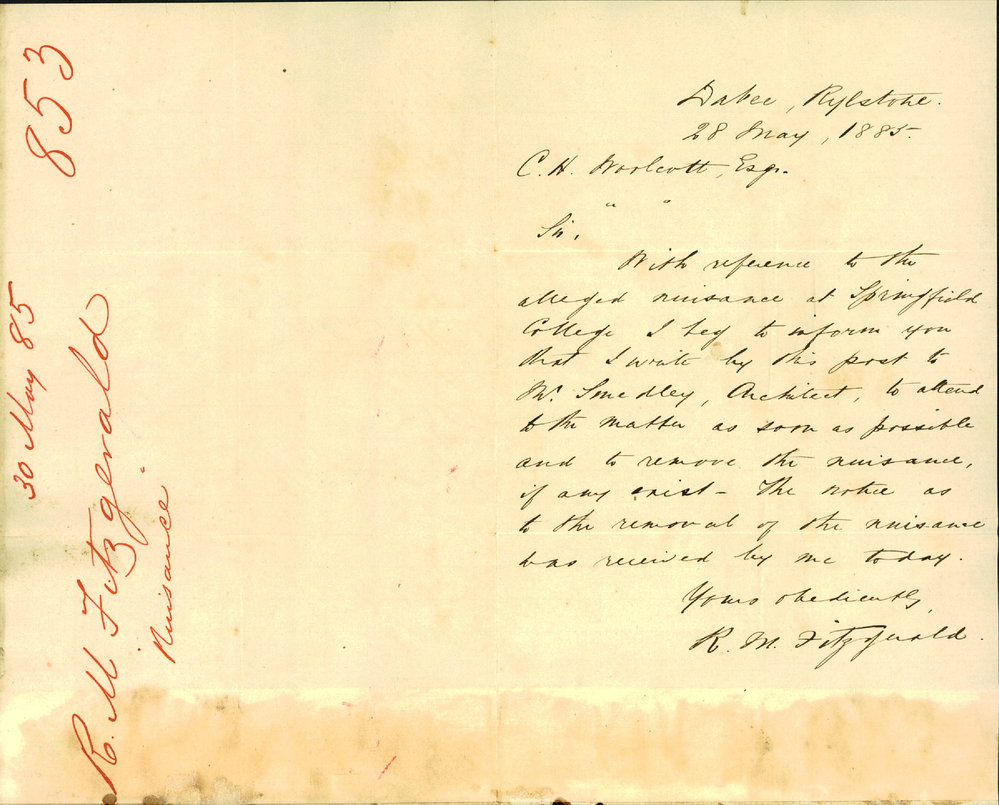 853
30 May 85
R. M. Fitzgerald
"Nuisance"
Dabee, Rylstone.
28 May, 1885.
C. H. Woolcott, Esq.
" "
Sir,
With reference to the
alleged nuisance at Springfield
College I beg to inform you
that I write by this post to
Mr. Smedley, Architect, to attend
to the matter as soon as possible
and to remove the nuisance,
if any exist - The notice as
to the removal of the nuisance
was received by me today.
Yours obediently,
R. M. Fitzgerald.